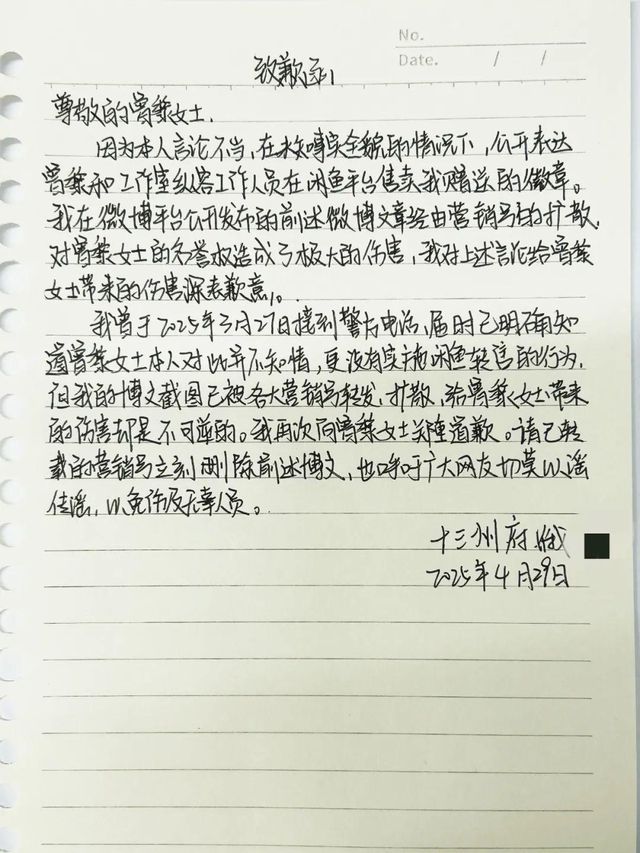 No.
Date. / /
致歉函
尊敬的曾黎女士.
因为本人言论不当,在未知事实全貌的情况下,公开表达
曾黎和工作室纵容工作人员在闲鱼平台售卖我赠送的徽章。
我在微博平台公开发布的前述微博文章经由营销号的扩散,
对曾黎女士的名誉权造成了极大的伤害,我对上述言论给曾黎
女士带来的伤害深表歉意。
我曾于2025年3月27日接到警方电话,届时已明确知
道曾黎女士本人对此并不知情,更没有实施闲鱼转售的行为,
但我的博文截图已被各大营销号转发、扩散,给曾黎女士带来
的伤害却是不可逆的。我再次向曾黎女士关注道歉。请已转
载的营销号立刻删除前述博文,也呼吁广大网友切莫以谣
传谣,以免伤及无辜人员。
十三州府
2025年4月29日